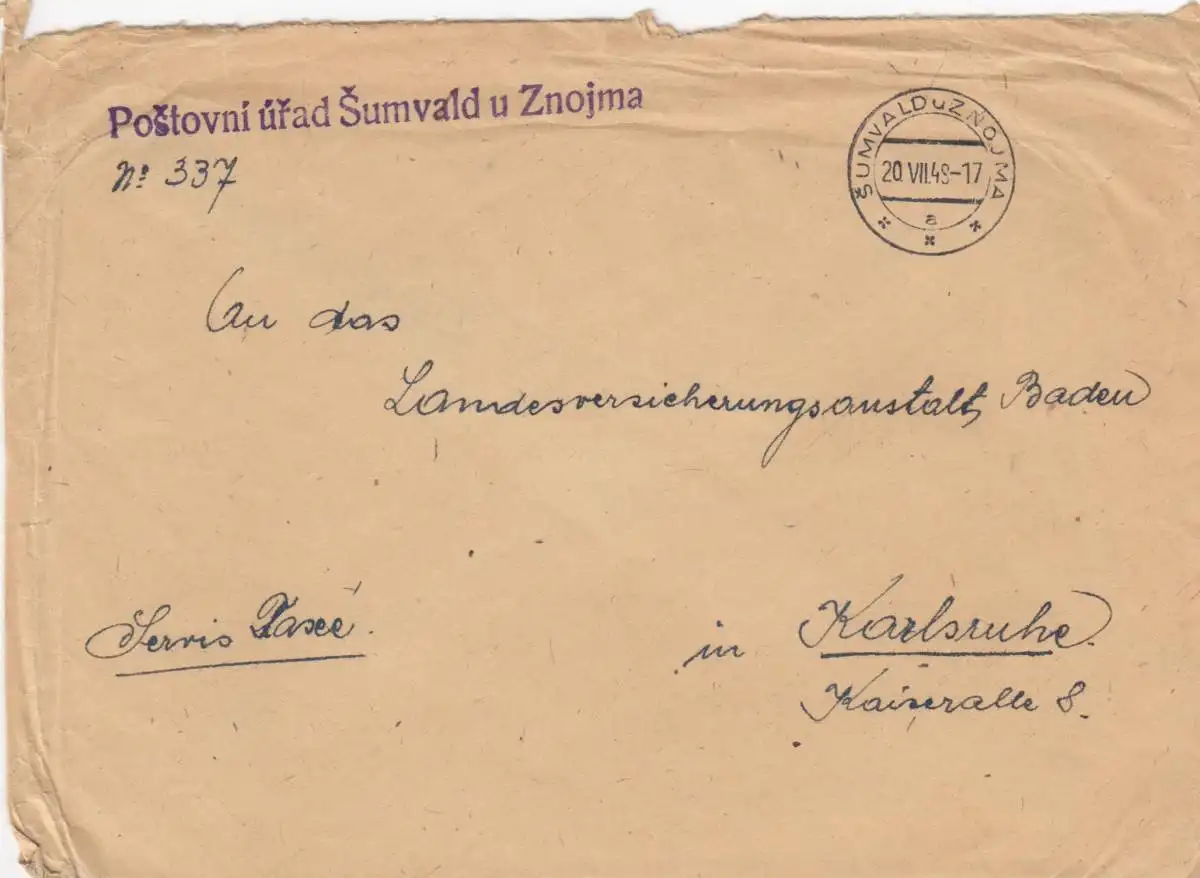 Poštovní úřad Šumvald u Znojma
No: 337
ŠUMVALD u ZNOJMA
20.VII.48-17
a
An das
Landesversicherungsanstalt, Baden
Servis Taxée.
in Karlsruhe.
Kaiseralle 8.